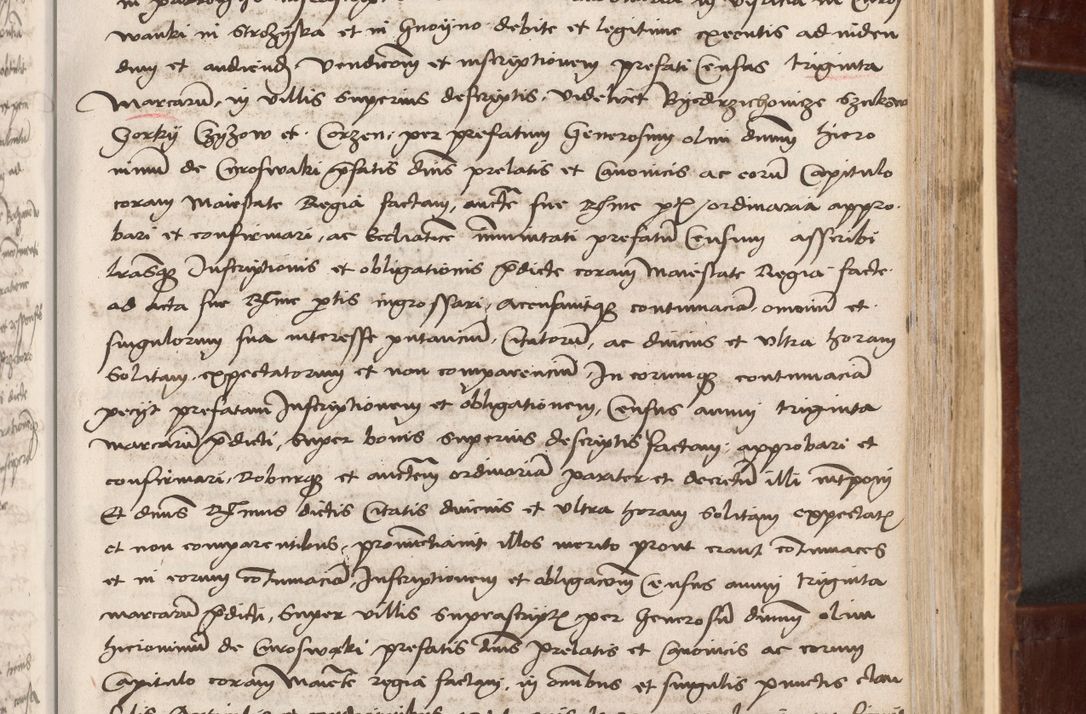 wanki in Strożyska et in Gnoyno debite et legitime executis ad viden
dum et audiend vendicōm et inscriptionem prefati Census triginta
Marcarū, in villis superius descriptis, videlicet Byedrzichowicze
Gortky Czyżow et Corzen, per prefatum Generosum olim dnūm hiero
nimum de Giroswaki pfatis dnis prelatis et Canonicis ac eorū Capitulo
coram Maiestate Regia factam, aucte sue Rme ptis ordinaria appro
bari et confirmari, ac Eccliastice immunitati prefatū Censum asscribi
lrasque Inscriptionis et obligationis pdicte coram Maiestate Regia facte
ad acta sue Rme ptis ingrossari, Accusavitque contumaciā omnium et
singulorum sua interesse putanciū, Citatorū, ac diucius et ultra horam
Solitam expectatorum et non comparenciū, In eorumque contumaciā
peciyt prefatam Inscriptionem et obligationem, Census annui triginta
marcarū pdicti, super bonis superius descriptis factam, approbari et
confirmari, Roburque et auctem ordinariā pariter et decretū illi intponi
Et dnus Rmus dictis Citatis diucius et ultra horam Solitam expectatis
et non comparentibus, pronunctiavit illos merito prout erant contumaces
et in eorum contumaciā, Inscriptionem et obligacōm Census annui triginta
marcarū pdicti, super villis suprascriptis per Generosū dnūm olim
hieronimū de Giroswaki prefatis dnis prelatis et Canonicis ac eorum
Capitulo coram Maiēte regia factam, in omnibus et singulis punctis clau